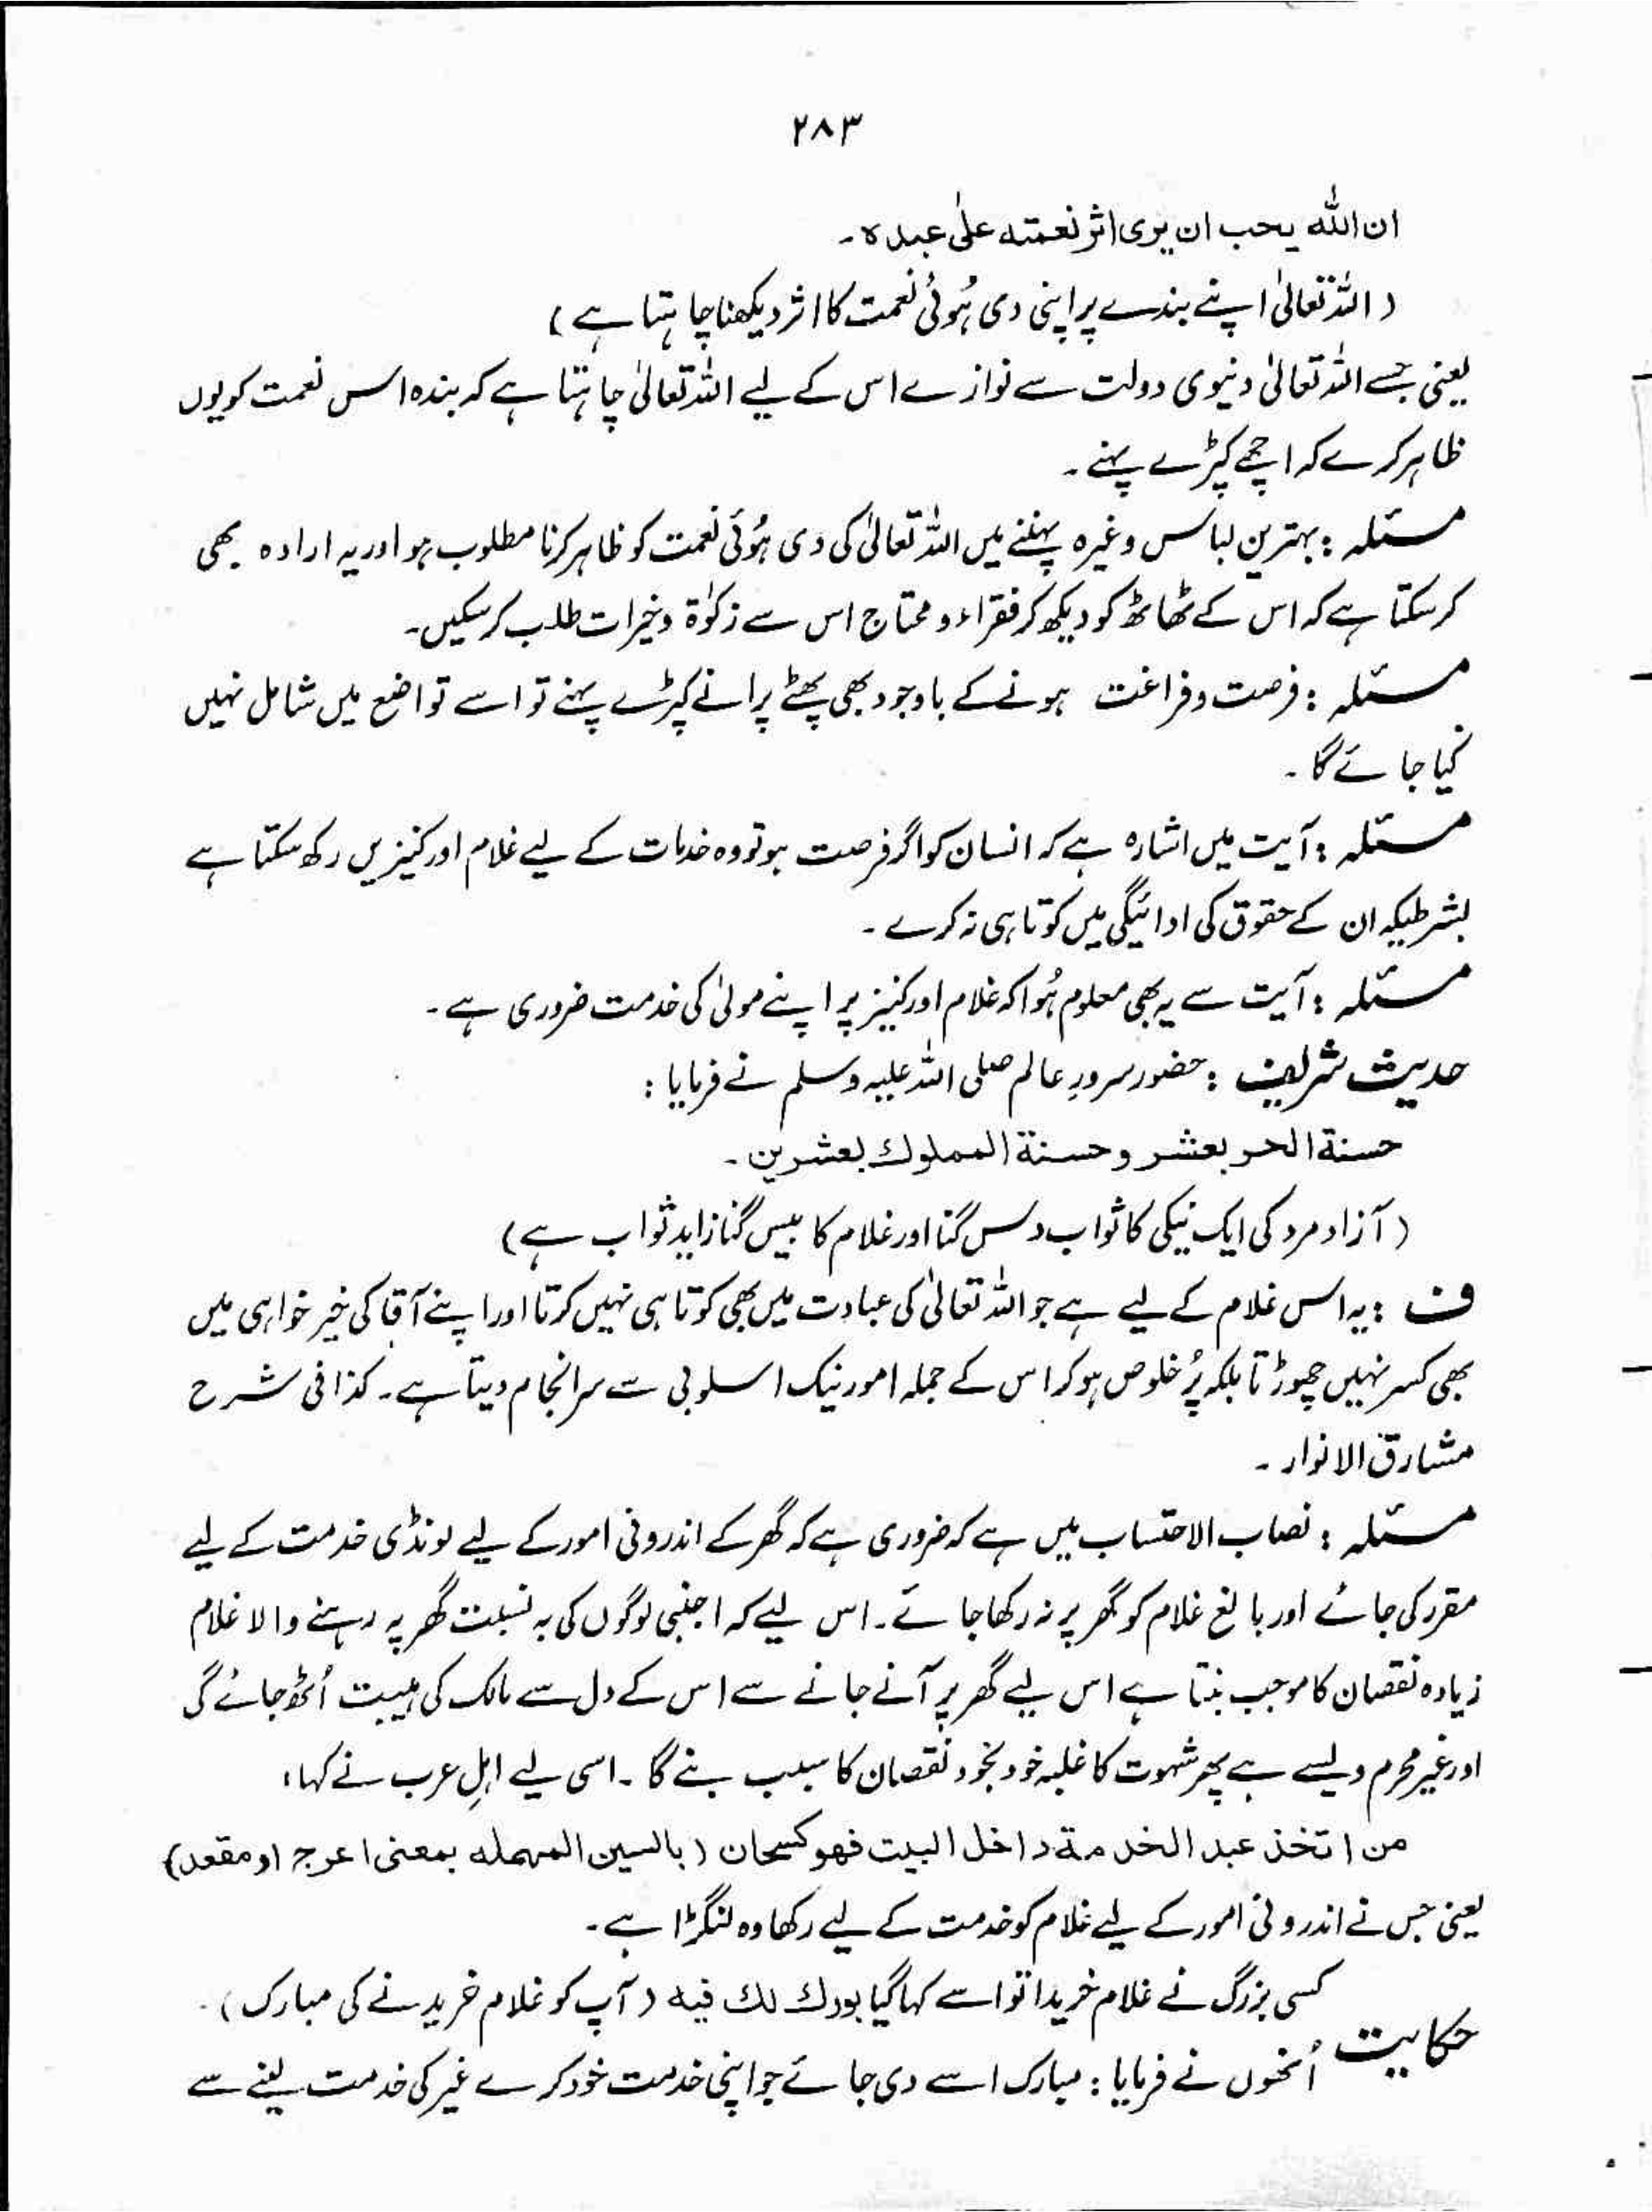 ۲۸۳
ان اللہ یحب ان یری اثر نعمتہ علیٰ عبدہ۔
( اللہ تعالیٰ اپنے بندے پر اپنی دی ہُوئی نعمت کا اثر دیکھنا چاہتا ہے )
یعنی جسے اللہ تعالیٰ دنیوی دولت سے نوازے اس کے لیے اللہ تعالیٰ چاہتا ہے کہ بندہ اس نعمت کو یوں
ظاہر کرے کہ اچھے کپڑے پہنے ۔
مسئلہ : بہترین لباس وغیرہ پہننے میں اللہ تعالیٰ کی دی ہُوئی نعمت کو ظاہر کرنا مطلوب ہو اور یہ ارادہ بھی
کر سکتا ہے کہ اس کے ٹھاٹھ کو دیکھ کر فقراء و محتاج اس سے زکوٰۃ و خیرات طلب کر سکیں۔
مسئلہ : فرصت و فراغت ہونے کے باوجود بھی پھٹے پرانے کپڑے پہنے تو اسے تواضع میں شامل نہیں
کیا جائے گا ۔
مسئلہ : آیت میں اشارہ ہے کہ انسان کو اگر فرصت ہو تو وہ خدمات کے لیے غلام اور کنیزیں رکھ سکتا ہے
بشرطیکہ ان کے حقوق کی ادائیگی میں کوتاہی نہ کرے ۔
مسئلہ : آیت سے یہ بھی معلوم ہُوا کہ غلام اور کنیز پر اپنے مولیٰ کی خدمت ضروری ہے ۔
حدیث شریف : حضور سرورِ عالم صلی اللہ علیہ وسلم نے فرمایا :
حسنۃ الحر بعشر و حسنۃ المملوک بعشرین ۔
( آزاد مرد کی ایک نیکی کا ثواب دس گنا اور غلام کا بیس گنا زاید ثواب ہے )
ف : یہ اس غلام کے لیے ہے جو اللہ تعالیٰ کی عبادت میں بھی کوتاہی نہیں کرتا اور اپنے آقا کی خیر خواہی میں
بھی کسر نہیں چھوڑتا بلکہ پُر خلوص ہو کر اس کے جملہ امور نیک اسلوبی سے سرانجام دیتا ہے۔ کذا فی شرح
مشارق الانوار ۔
مسئلہ : نصاب الاحتساب میں ہے کہ ضروری ہے کہ گھر کے اندرونی امور کے لیے لونڈی خدمت کے لیے
مقرر کی جائے اور بالغ غلام کو گھر پر نہ رکھا جائے۔ اس لیے کہ اجنبی لوگوں کی بہ نسبت گھر پہ رہنے والا غلام
زیادہ نقصان کا موجب بنتا ہے اس لیے گھر پر آنے جانے سے اس کے دل سے مالک کی ہیبت اُٹھ جائے گی
اور غیر محرم ویسے ہے پھر شہوت کا غلبہ خود بخود نقصان کا سبب بنے گا ۔ اسی لیے اہلِ عرب نے کہا :
من اتخذ عبد الخدمۃ داخل البیت فھو کسحان ( بالسین المہملہ بمعنی اعرج او مقعد)
یعنی جس نے اندرونی امور کے لیے غلام کو خدمت کے لیے رکھا وہ لنگڑا ہے ۔
کسی بزرگ نے غلام خریدا تو اسے کہا گیا بورک لک فیہ ( آپ کو غلام خریدنے کی مبارک ) ۔
حکایت اُنھوں نے فرمایا : مبارک اسے دی جائے جو اپنی خدمت خود کرے غیر کی خدمت لینے سے